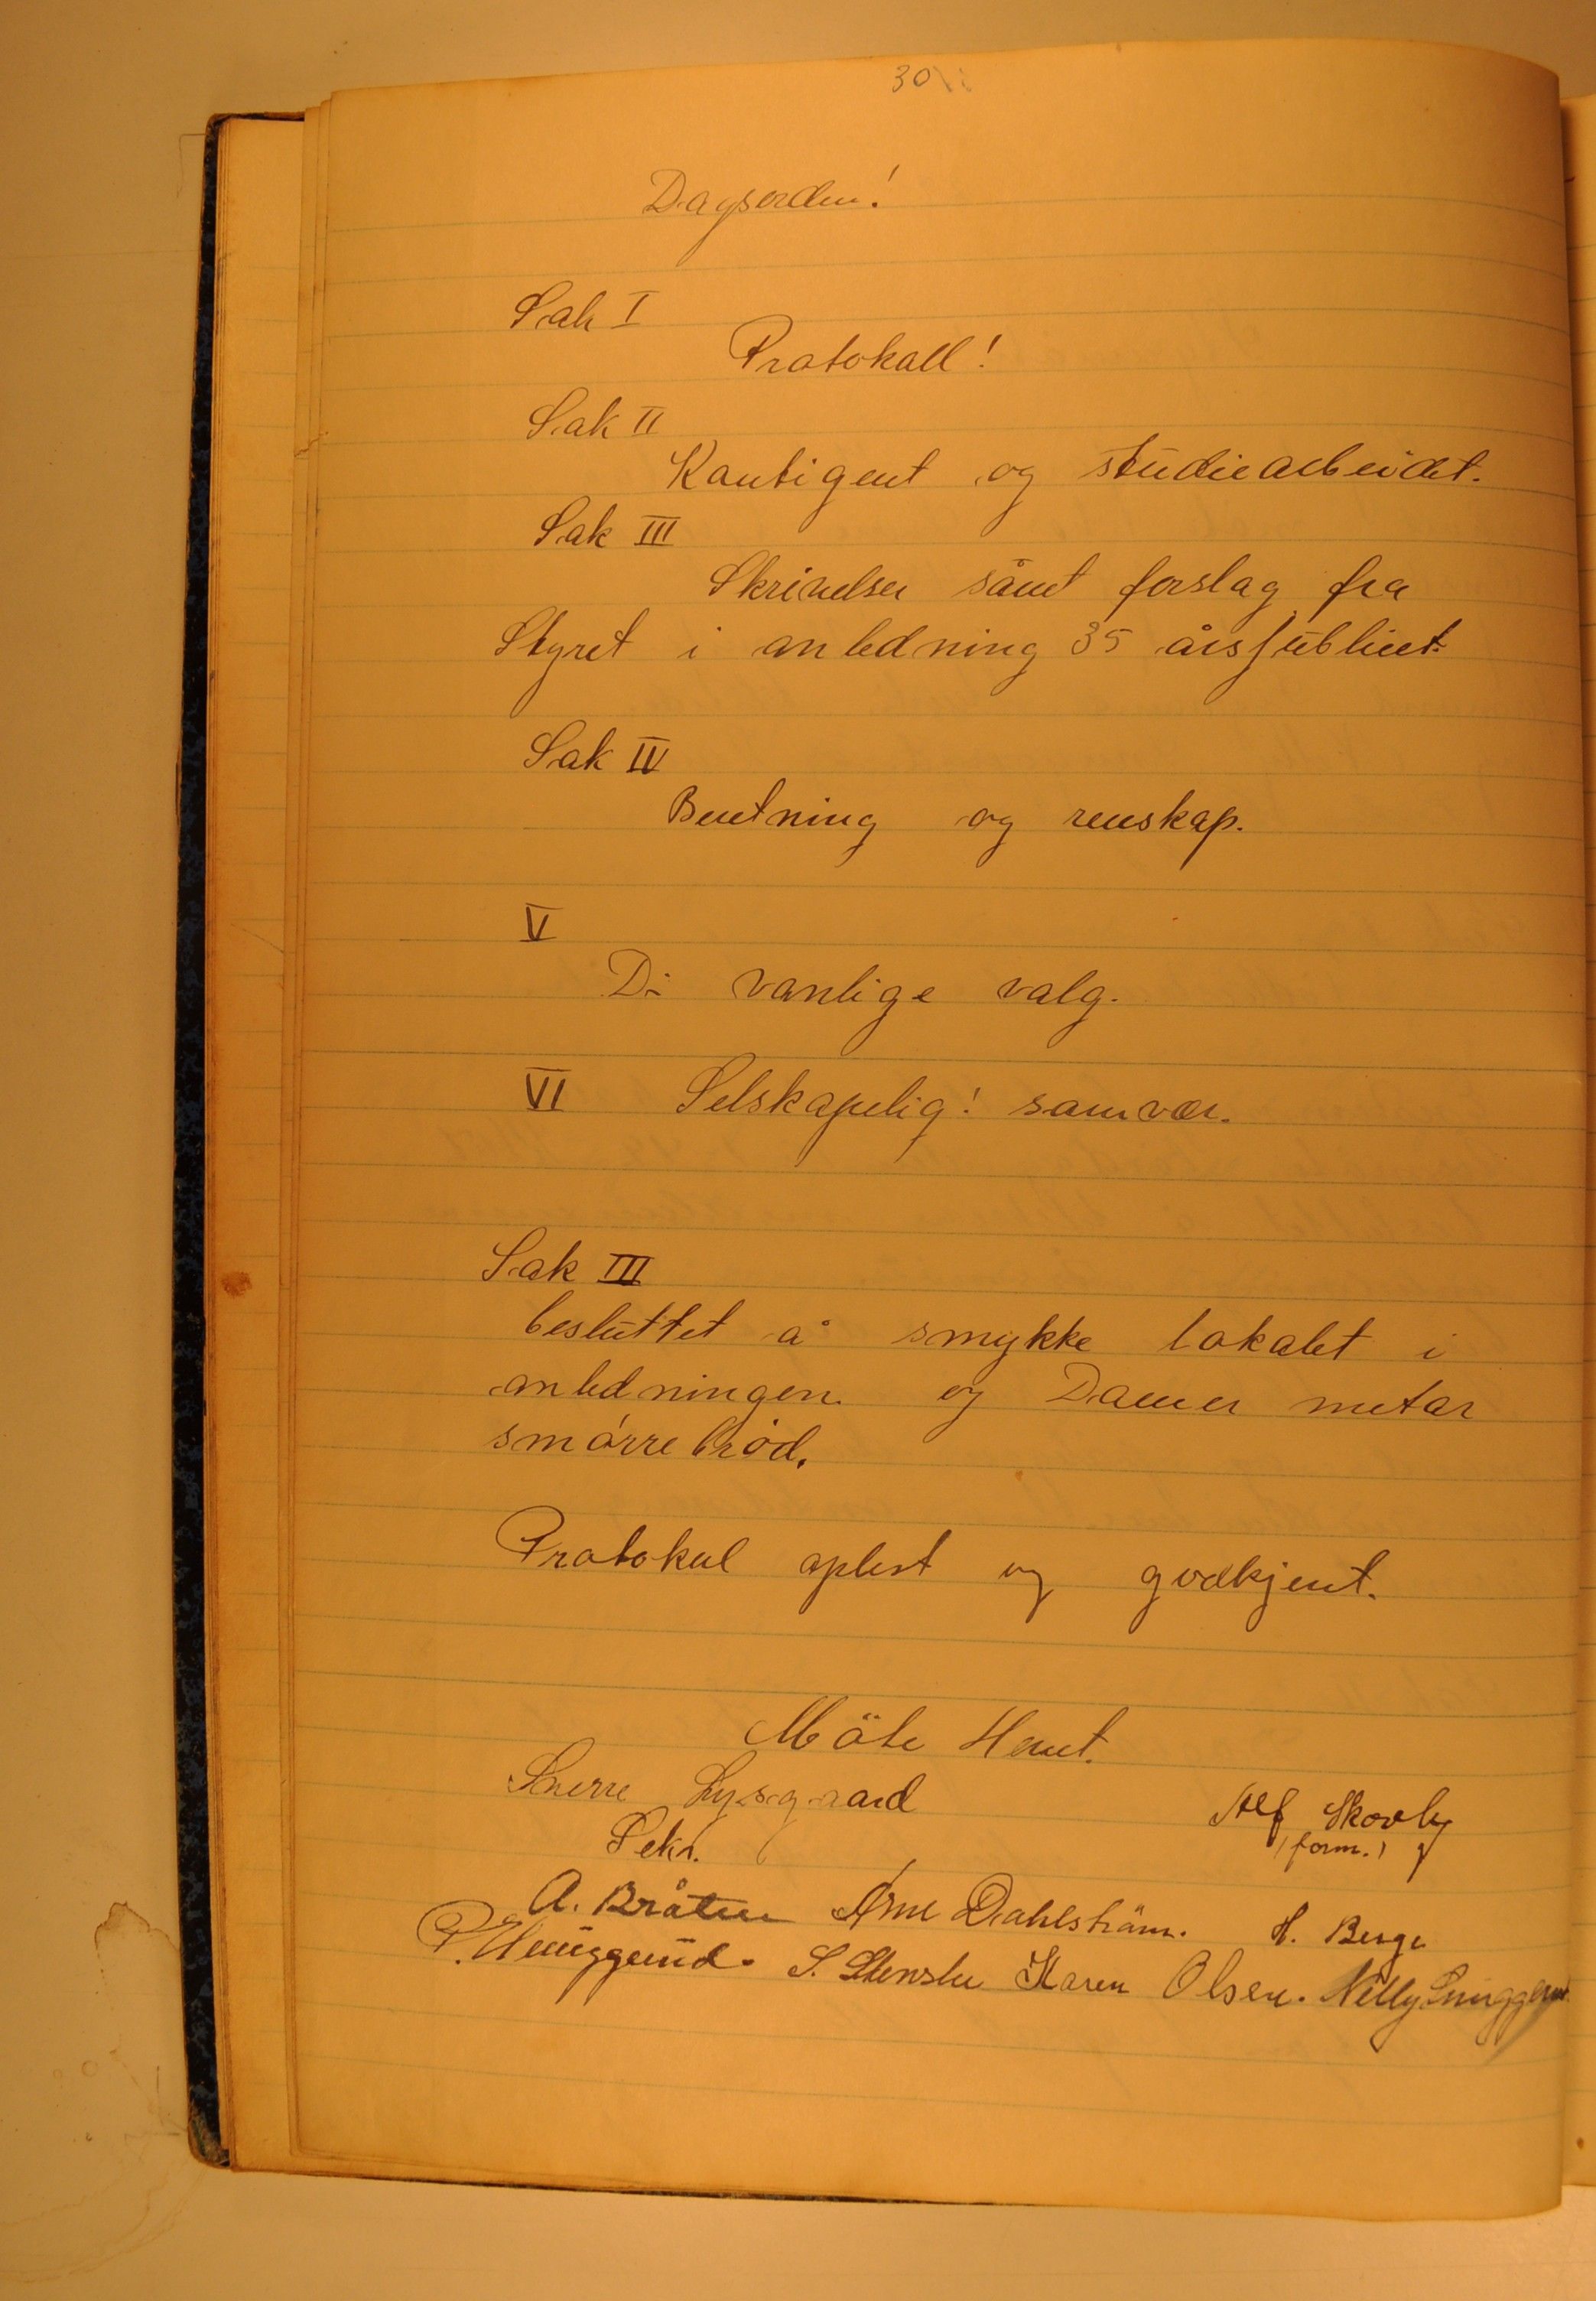 30
Dagsorden!
Sak I
Protokoll!
Sak II
Kontigent og studiearbeidet.
Sak III
Skrivelser sämt forslag fra
Styret i anledning 35 årsjubileet.
Sak IV
Beretning og renskap.
V
Di vanlige valg.
VI Selskapelig! samvær.
Sak III
besluttet å smykke lokalet i
anledningen og Damer metar
smörrebröd.
Protokol oplest og godkjent.
Möte Hevet.
Sverre Lysgaard
Alf Skovly
Sekr.
(form.)
A. Bråten Arne Dahlström. H. Berge
P. S. Stensli Karen Olsen. Nelly